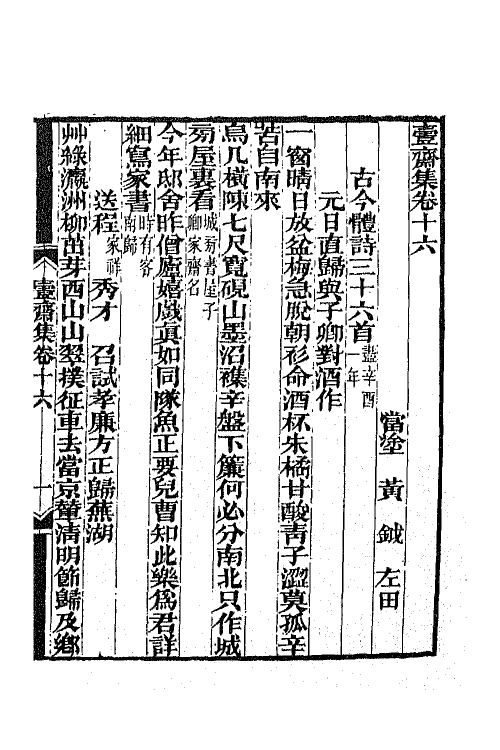 壹齋集卷十六
當塗 黃 鉞 左田
古今體詩三十六首盡辛酉一年
元日直歸與子卿對酒作
一窗晴日放盆梅急脫朝衫命酒杯朱橘甘酸靑子澀莫孤辛
苦自南來
烏几橫陳七尺寬硯山墨沼襍辛盤下簾何必分南北只作城
南屋裏看城南書屋子卿家齋名
今年邸舍昨僧廬嬉戲眞如同隊魚正要兒曹知此樂爲君詳
細寫家書時有客南歸
送程家祥秀才 召試孝廉方正歸蕪湖
艸綠瀛洲柳茁芽西山山翠撲征車去當京輦淸明節歸及鄉
壹齋集卷十六
一